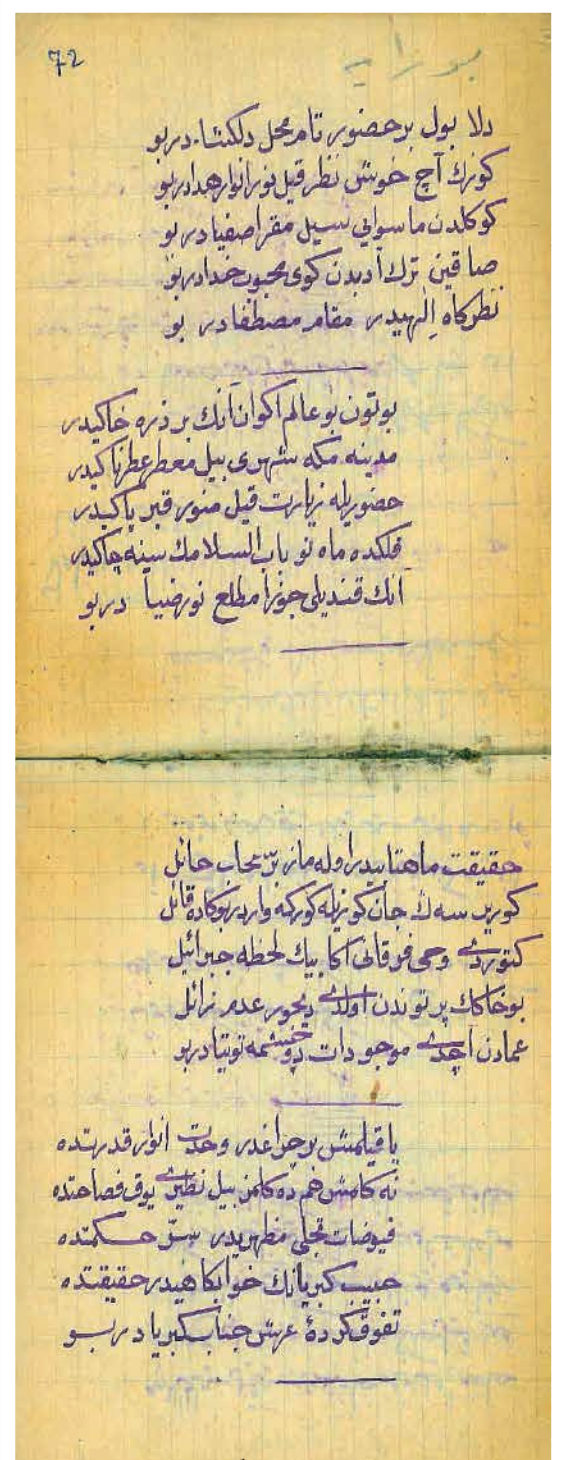 72
دلا بول بر حضور تام محل دلكشادر بو
كوزك آچ خوش نظر قيل نور انوار هدادر بو
كوكلدن ماسوايى سيل مقر اصفيادر بو
صاقين ترك ادبدن كوى محبوب خدادر بو
نظركاه إلهيدر مقام مصطفادر بو
بوتون بو عالم اكوان آنك بر ذره خاكيدر
مدينه مكه شهرى بيل معطر عطرناكيدر
حضوريله زيارت قيل منور قبر پاكيدر
فلكده ماه نو باب السلامك سينه چاكيدر
آنك قنديلى جوزا مطلع نور ضيا در بو
حقيقت ماهتابيدر اوله ماز بر سحاب حائل
كورر سه ڭ جان كوزيله كوركه واردر بوكاده قائل
كتوردى وحى فرقانى اكا بيك لحظه جبرائيل
بو خاكك پرتوندن اولدى ديجور عدم زائل
عمادن آچدى موجودات دو چشمه توتيادر بو
ياقيلمش بر چراغدر وحدت انوار قدرتده
نه كلمش هم ده كلمز بيل نظيرى يوق فصاحتده
فيوضات تجلى مظهريدر سر حكمتده
حبيب كبريانك خوابكاهيدر حقيقتده
تفوق كرده عرش جناب كبريا در بو